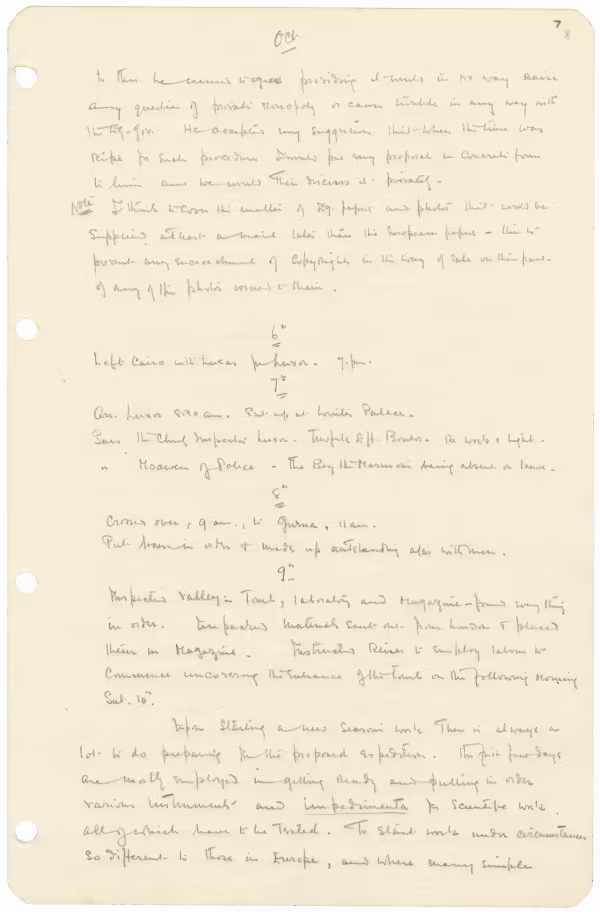 7
8
Oct
To this he seemed to agree providing it would in no way raise
any question of private Monopoly or cause trouble in any way with
the Eg-Gov. He accepted my suggestion that when the time was
ripe for such procedure I would put my proposal in concrete form
to him and we would then discuss it privately.
Note I think to cover the matter of Eg. papers and photos that would be
supplied at least a mail later than the European papers - this to
prevent any encroachment of Copyrights in the way of sale on their part
of any of the photos issued to them.
6th
Left Cairo with Lucas for Luxor. 7. pm.
7th
Arr. Luxor 8.30 am. Put up at Winter Palace.
Saw the Chief Inspector Luxor - Tewfik Eff. Boulos. re work & light.
" Moawen of Police - the Bey the Mamour being absent on leave.
8th
Crossed over, 9 am., to Gurna, 11 am.
Put house in order & made up outstanding a/cs with men.
9th
Inspected Valley - Tomb, laboratory and Magazine - found everything
in order. Unpacked materials sent out from London & placed
them in Magazine. Instructed Rises to employ labour to
commence uncovering the entrance of the tomb on the following morning
Sat. 10th.
Upon starting a new season's work there is always a
lot to do preparing for the proposed expedition. The first few days
are mostly employed in getting ready and putting in order
various instruments and impedimenta for scientific work,
all of which have to be tested. To start work under circumstances
so different to those in Europe, and where many simple